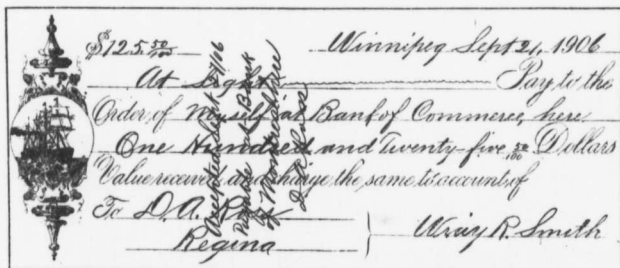 $125.50/100 Winnipeg Sept 21, 1906
At Sight Pay to the
Order of Myself at Bank of Commerce, here
One Hundred and Twenty-five 50/100 Dollars
Value received and charge the same to account of
To D. A.
Regina
Wray R. Smith
Accepted Sept
Payable at Bank
of Montreal here